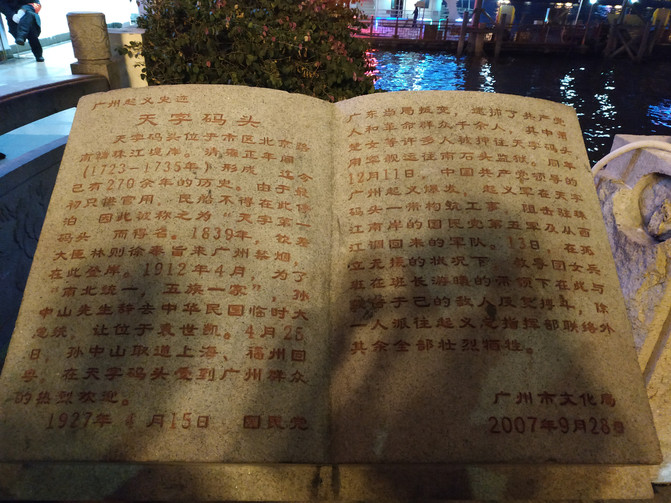 广州起义史迹
天字码头
天字码头位于市区北京路
南端珠江堤岸。清雍正年间
(1723—1735年)形成 距今
已有270余年的历史。由于此
初只接官用,民船不得在此停
泊 因此被称之为“天字第一
码头 而得名。1839年,钦差
大臣林则徐奉旨来广州禁烟,
在此登岸。1912年4月,为了
“南北统一,五族一家”,孙
中山先生辞去中华民国临时大
总统,让位于袁世凯。4月25
日,孙中山取道上海、福州回
粤。在天字码头受到广州群众
的热烈欢迎。
1927年4月15日 国民党
广东当局叛变,逮捕了共产党
人和革命群众千余人,其中萧
楚女等许多人被押往天字码头
用军舰运往南石头监狱。同年
12月11日,中国共产党领导的
广州起义爆发 起义军在天字
码头一带构筑工事 阻击驻珠
江南岸的国民党第五军及从西
江调回来的军队。13日 在死
位无援的状况下 教导团女兵
班在班长游曦的带领下在此与
于己的敌人反复搏斗,除
一人派往起义总指挥部联络外
其余全部壮烈牺牲。
广州市文化局
2007年9月28日